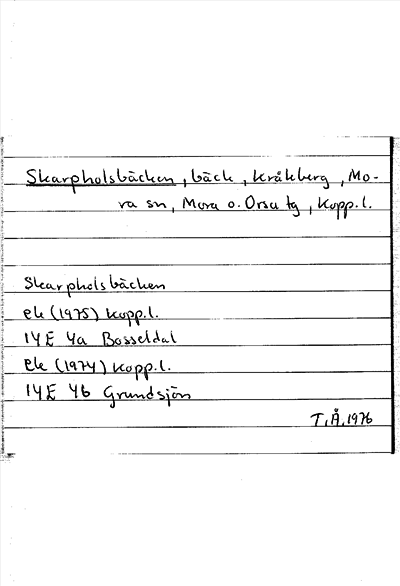 Skarpholsbäcken, bäck, Kråkberg, Mo-
ra sn, Mora o. Orsa tg, Kopp.l.
Skarpholsbäcken
ek (1975) Kopp.l.
14E 4a Bosseldal
ek (1974) Kopp.l.
14E 4b Grundsjön
T.Å. 1976